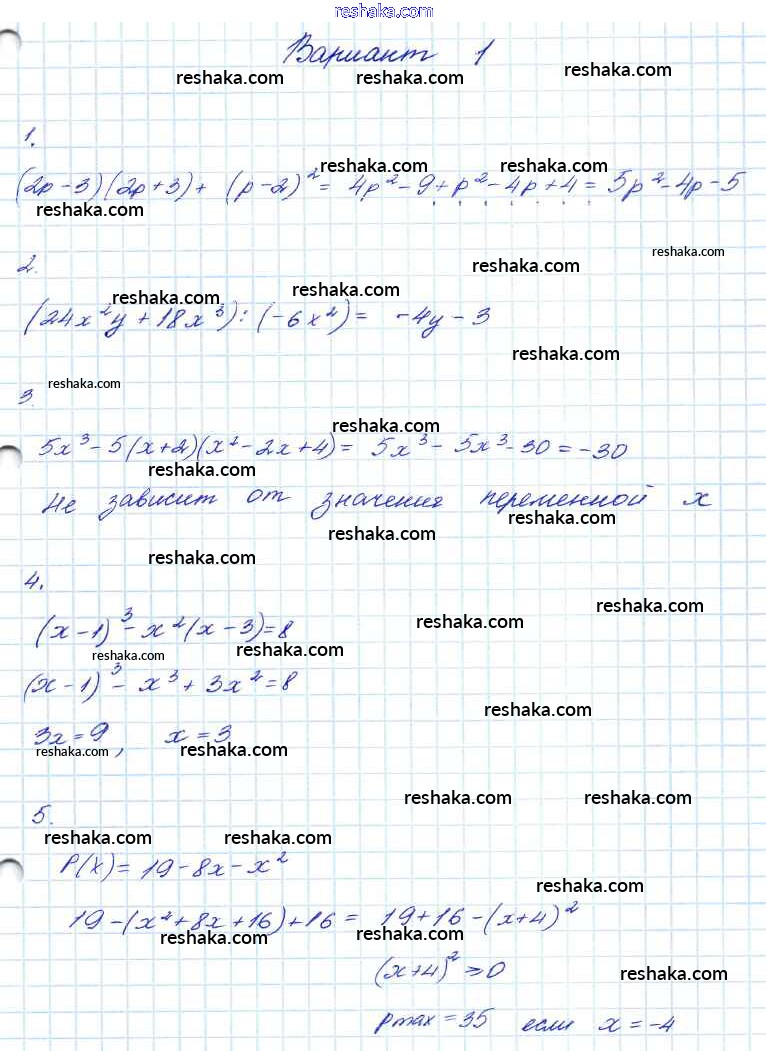 reshaka.com
Вариант 1
reshaka.com reshaka.com reshaka.com
1.
reshaka.com reshaka.com
(2p-3)(2p+3)+(p-2)²= 4p²-9+p²-4p+4=5p²-4p-5
reshaka.com
reshaka.com
2.
reshaka.com
reshaka.com reshaka.com
(24x²y+18x³):(-6x²)= -4y-3
reshaka.com
reshaka.com
3.
reshaka.com
5x³-5(x+2)(x²-2x+4)= 5x³-5x³-30=-30
reshaka.com
Не зависит от значения переменной x
reshaka.com
reshaka.com
reshaka.com
4.
reshaka.com
(x-1)³-x²(x-3)=8
reshaka.com
reshaka.com reshaka.com
(x-1)³-x³+3x²=8
reshaka.com
3x=9, x=3
reshaka.com reshaka.com
reshaka.com reshaka.com
5.
reshaka.com reshaka.com
P(x)=19-8x-x²
reshaka.com
19-(x²+8x+16)+16= 19+16-(x+4)²
reshaka.com reshaka.com
(x+4)²⩾0
reshaka.com
pmax=35 если x=-4